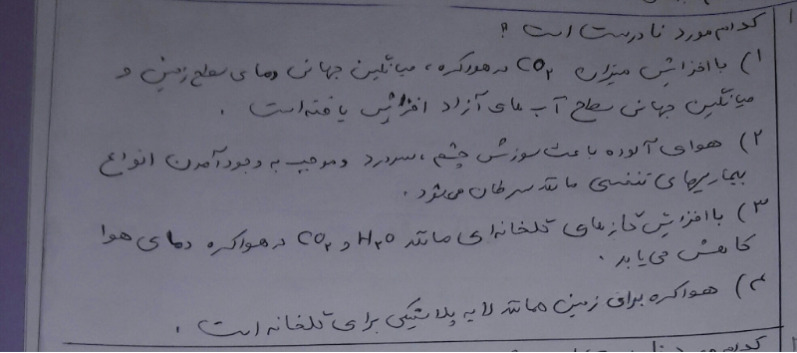 کدام مورد نادرست است ؟
۱) با افزایش میزان CO₂ در هواکره ، میانگین جهانی دمای سطح زمین و
میانگین جهانی سطح آب های آزاد افزایش یافته است .
۲) هوای آلوده باعث سوزش چشم ، سردرد و موجب به وجود آمدن انواع
بیماریهای تنفسی مانند سرطان می شود .
۳) با افزایش گازهای گلخانه ای مانند H₂O و CO₂ در هواکره دمای هوا
کاهش می یابد .
۴) هواکره برای زمین همانند لایه پلاستیکی برای گلخانه است .
کدام مورد